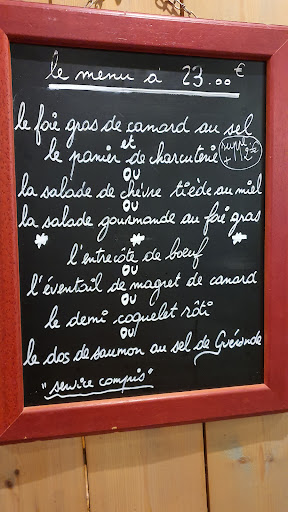 le menu à 23.00€
le foie gras de canard au sel
et
le panier de charcuterie
ou
la salade de chèvre tiède au miel
ou
la salade gourmande au foie gras
* * *
l'entrecôte de boeuf
ou
l'éventail de magret de canard
ou
le demi coquelet rôti
ou
le dos de saumon au sel de Guérande
"service compris"